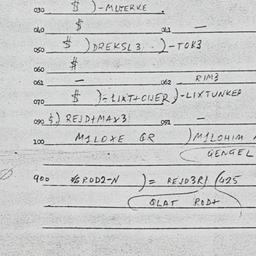 030 $ )-MLTERKE
040 $ 041 —
050 $ )DREKSL3 .)-TOK3
060 #
061 — 062 RIM3
070 $ )-LIXT+OUER )-LIXTUNKER
090 $) REJD+MAX3 091 —
100 M1LOXE QR )M1LOHIM
GENGEL
900 $ROD2-N )= REJD3RJ (425
QLAT ROD+